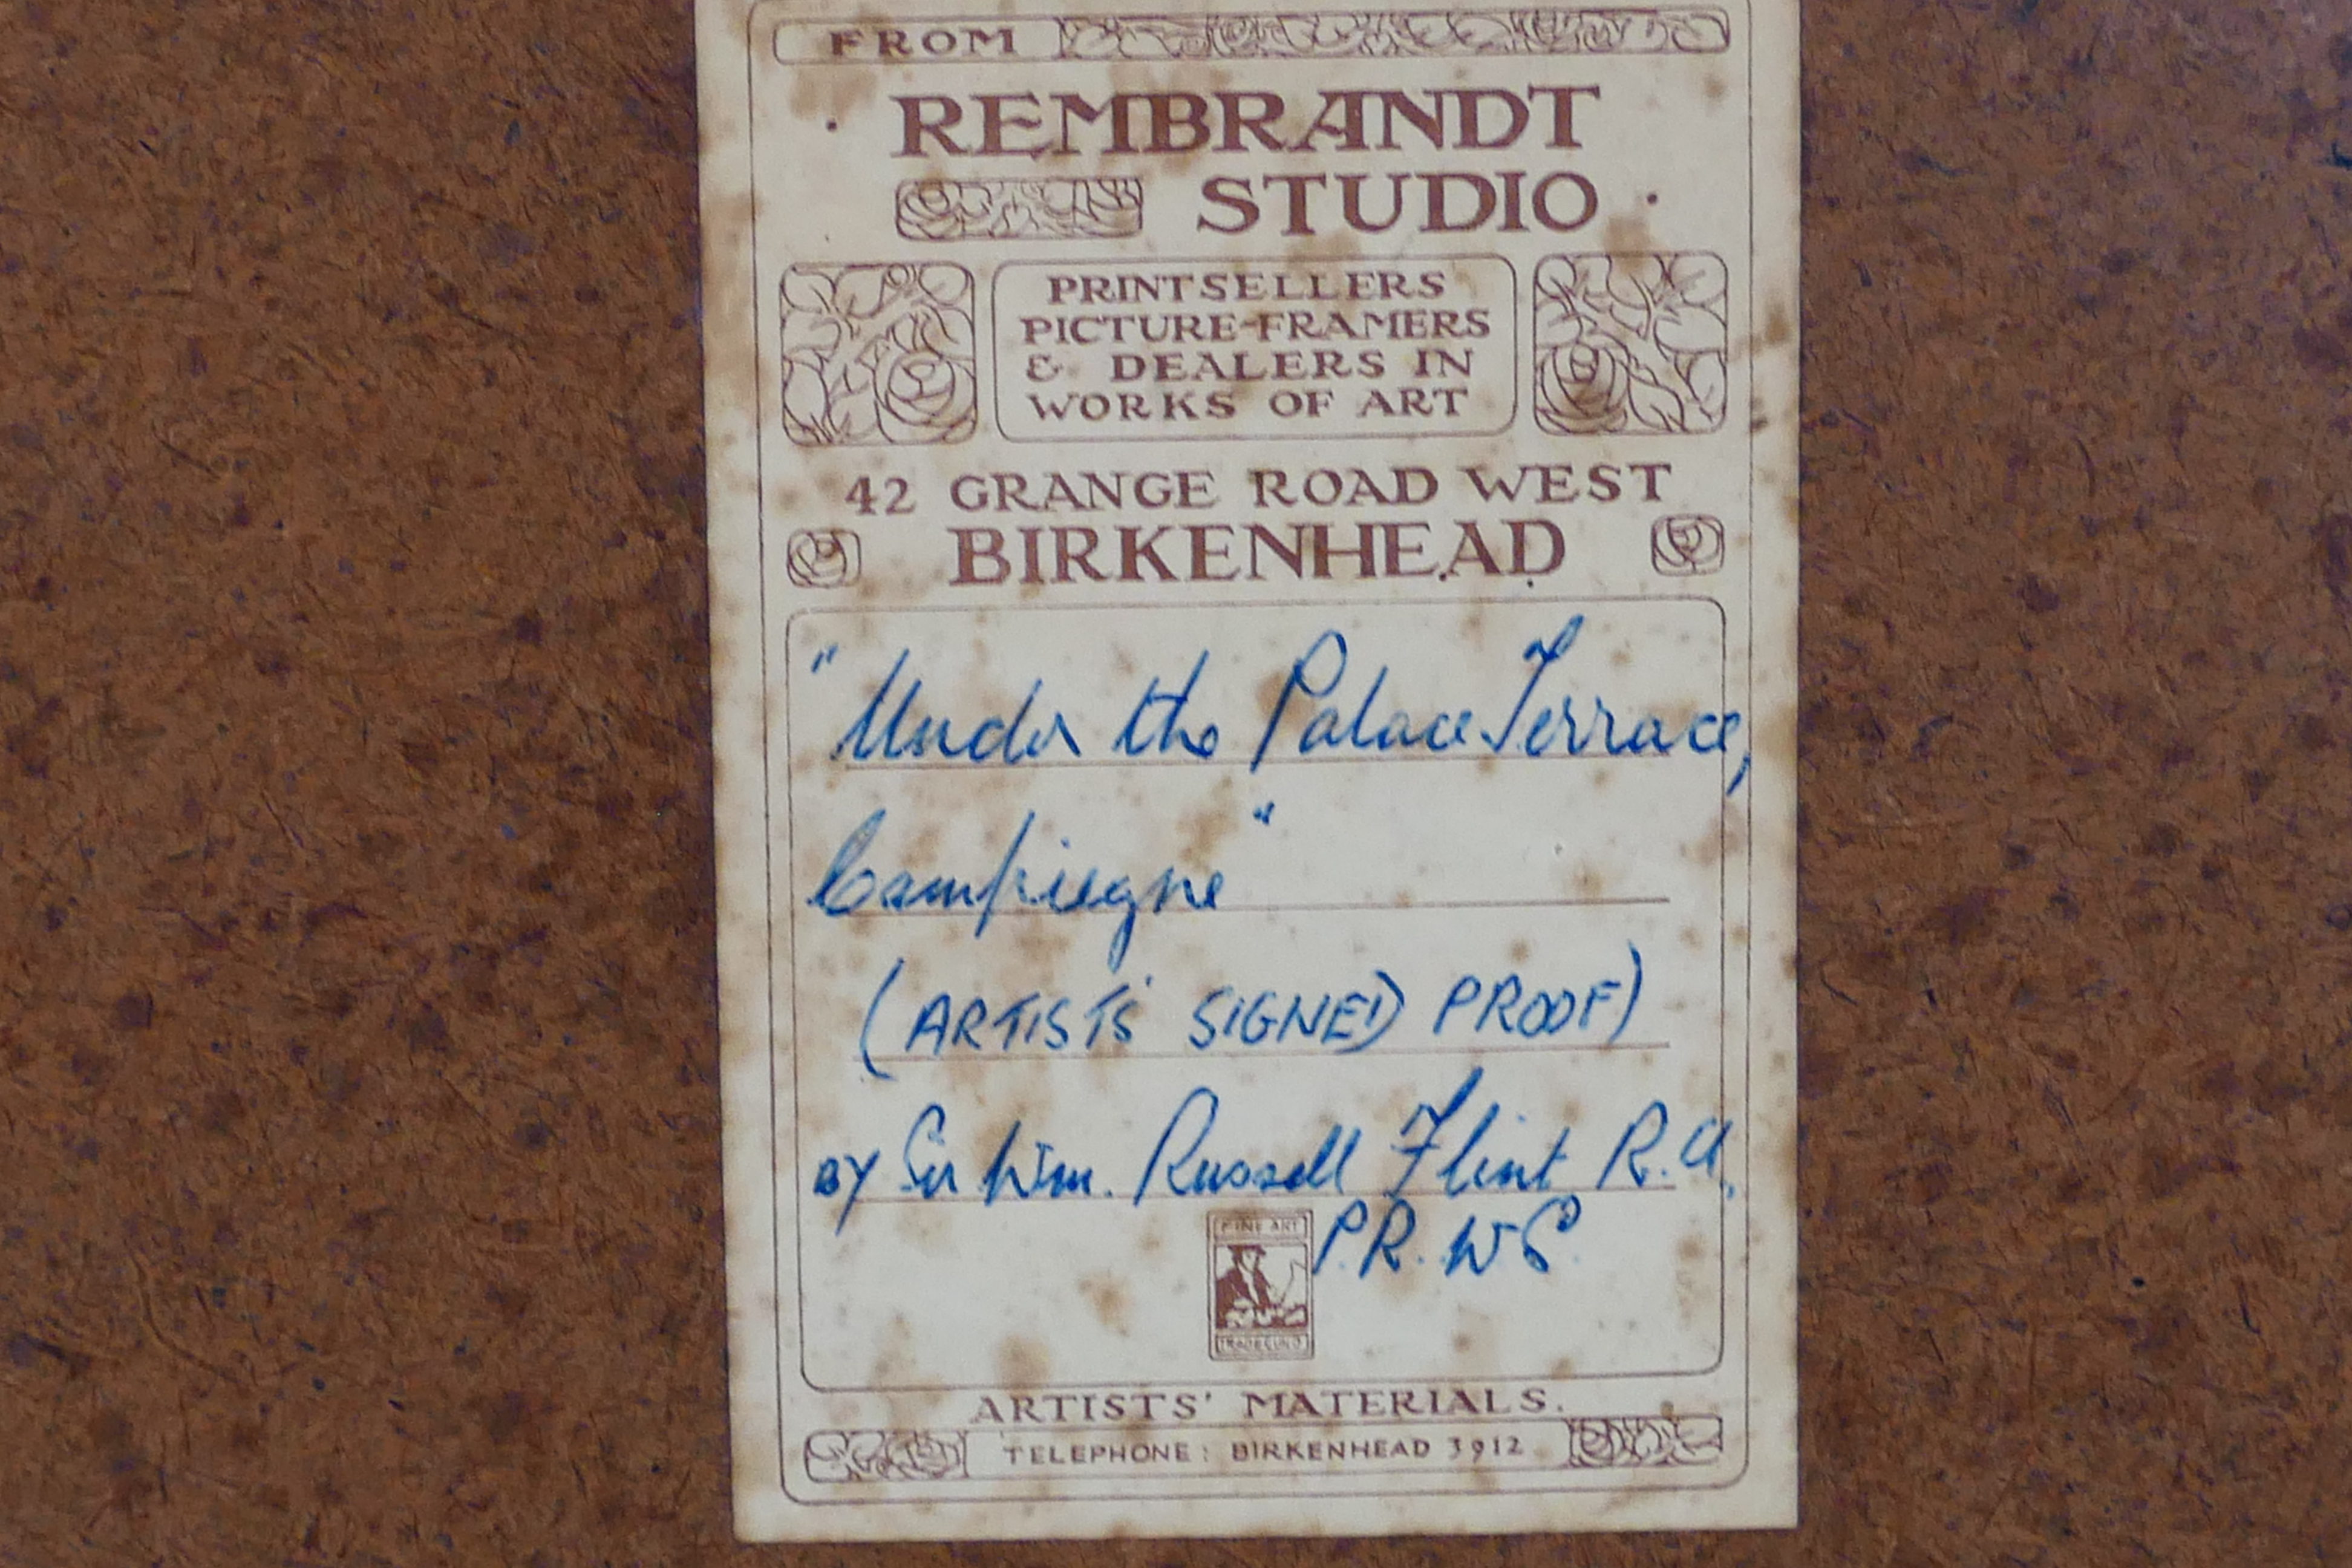 FROM
REMBRANDT
STUDIO
PRINTSELLERS
PICTURE-FRAMERS
& DEALERS IN
WORKS OF ART
42 GRANGE ROAD WEST
BIRKENHEAD
"Under the Palace Terrace,
Compiegne"
(ARTISTS' SIGNED PROOF)
BY Sir Wm. Russell Flint R.A.
P.R.W.S.
FINE ART
TRADE GUILD
ARTISTS' MATERIALS.
TELEPHONE: BIRKENHEAD 3912